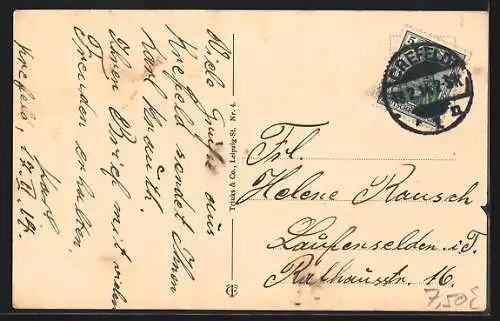 Viele Grüße aus
Krefeld sendet Ihnen
Karl Knauth.
Ihren Brief mit vielen
Freuden erhalten.
Karl
Krefeld, 17. II. 14.
Trinks & Co., Leipzig-St. Nr. 4.
CREFELD
Frl.
Helene Rausch
Laufenselden i. T.
Rathausstr. 16.
7,50€